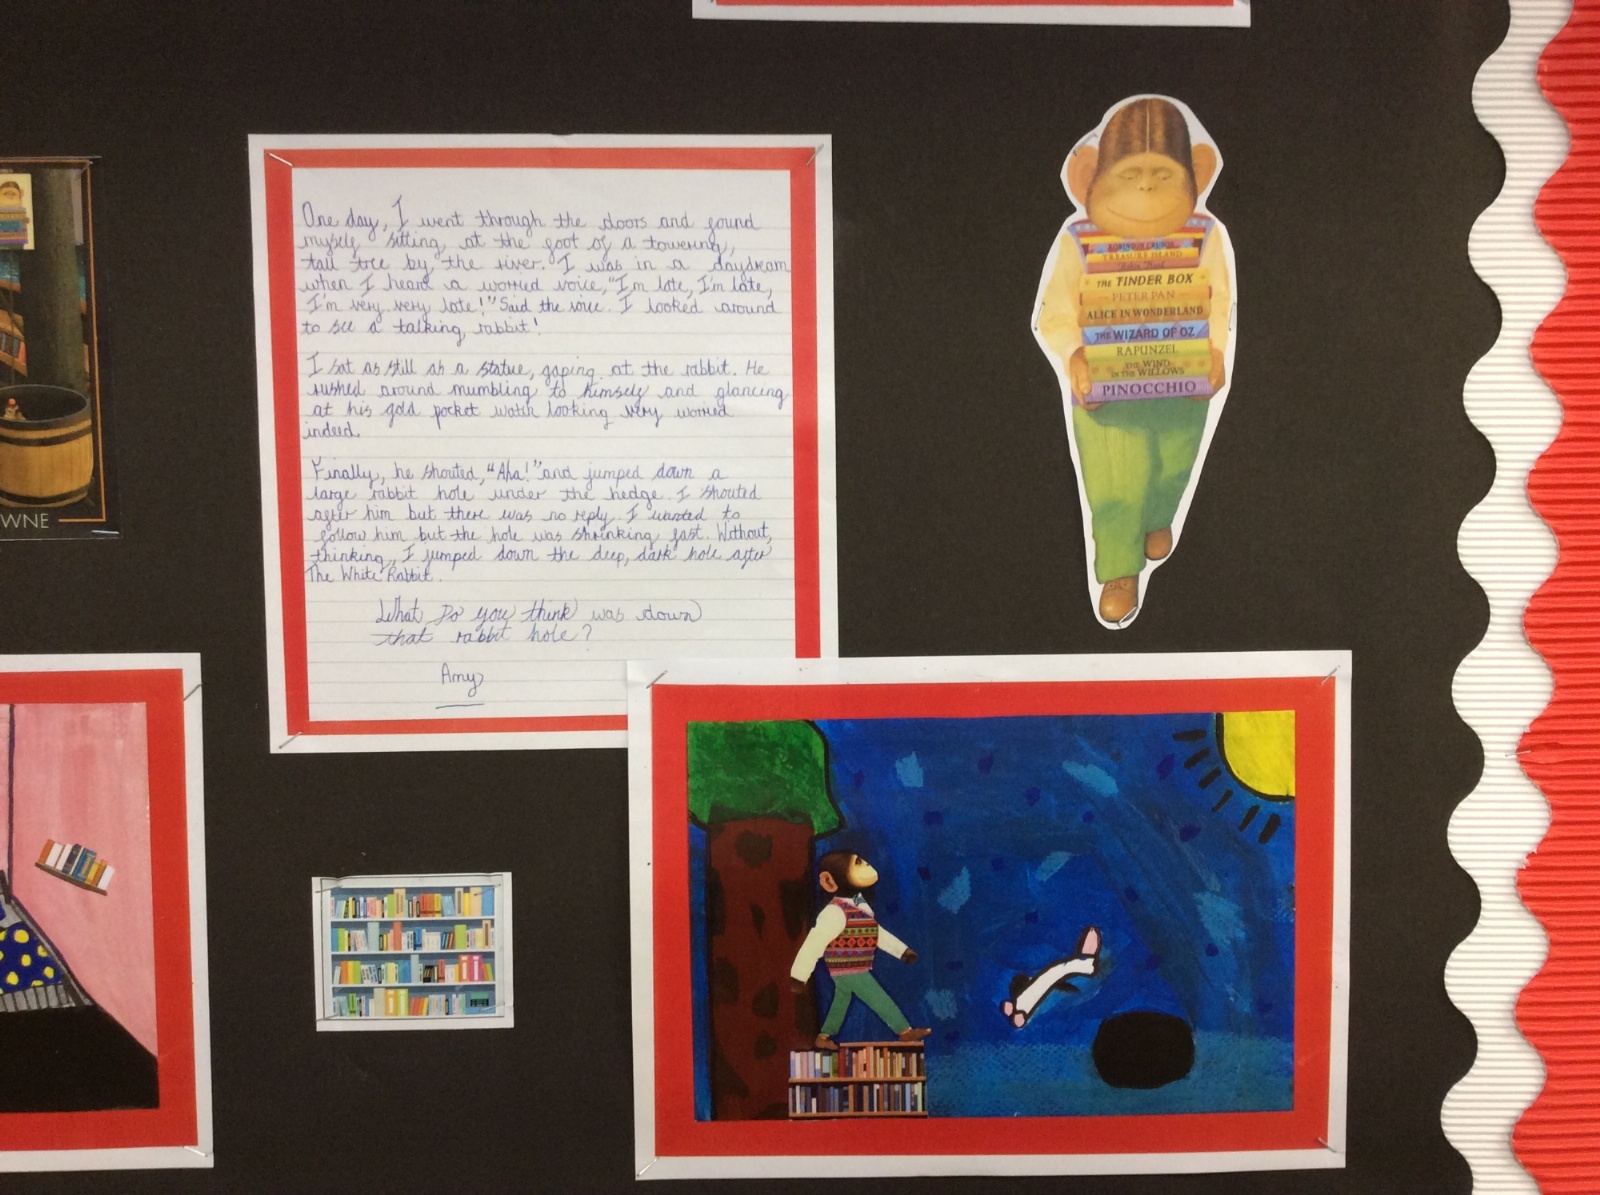 One day, I went through the doors and found
myself sitting at the foot of a towering,
tall tree by the river. I was in a daydream
when I heard a worried voice, "I'm late, I'm late,
I'm very very late!" Said the voice. I looked around
to see a talking rabbit!
I sat as still as a statue, gaping at the rabbit. He
rushed around mumbling to himself and glancing
at his gold pocket watch looking very worried
indeed.
Finally, he shouted, "Aha!" and jumped down a
large rabbit hole under the hedge. I shouted
after him but there was no reply. I wanted to
follow him but the hole was shrinking fast. Without,
thinking, I jumped down the deep, dark hole after
The White Rabbit.
What Do you think was down
that rabbit hole?
Amy
ROBINSON CRUSOE
TREASURE ISLAND
THE TINDER BOX
PETER PAN
ALICE IN WONDERLAND
THE WIZARD OF OZ
RAPUNZEL
THE WIND
IN THE WILLOWS
PINOCCHIO
WNE